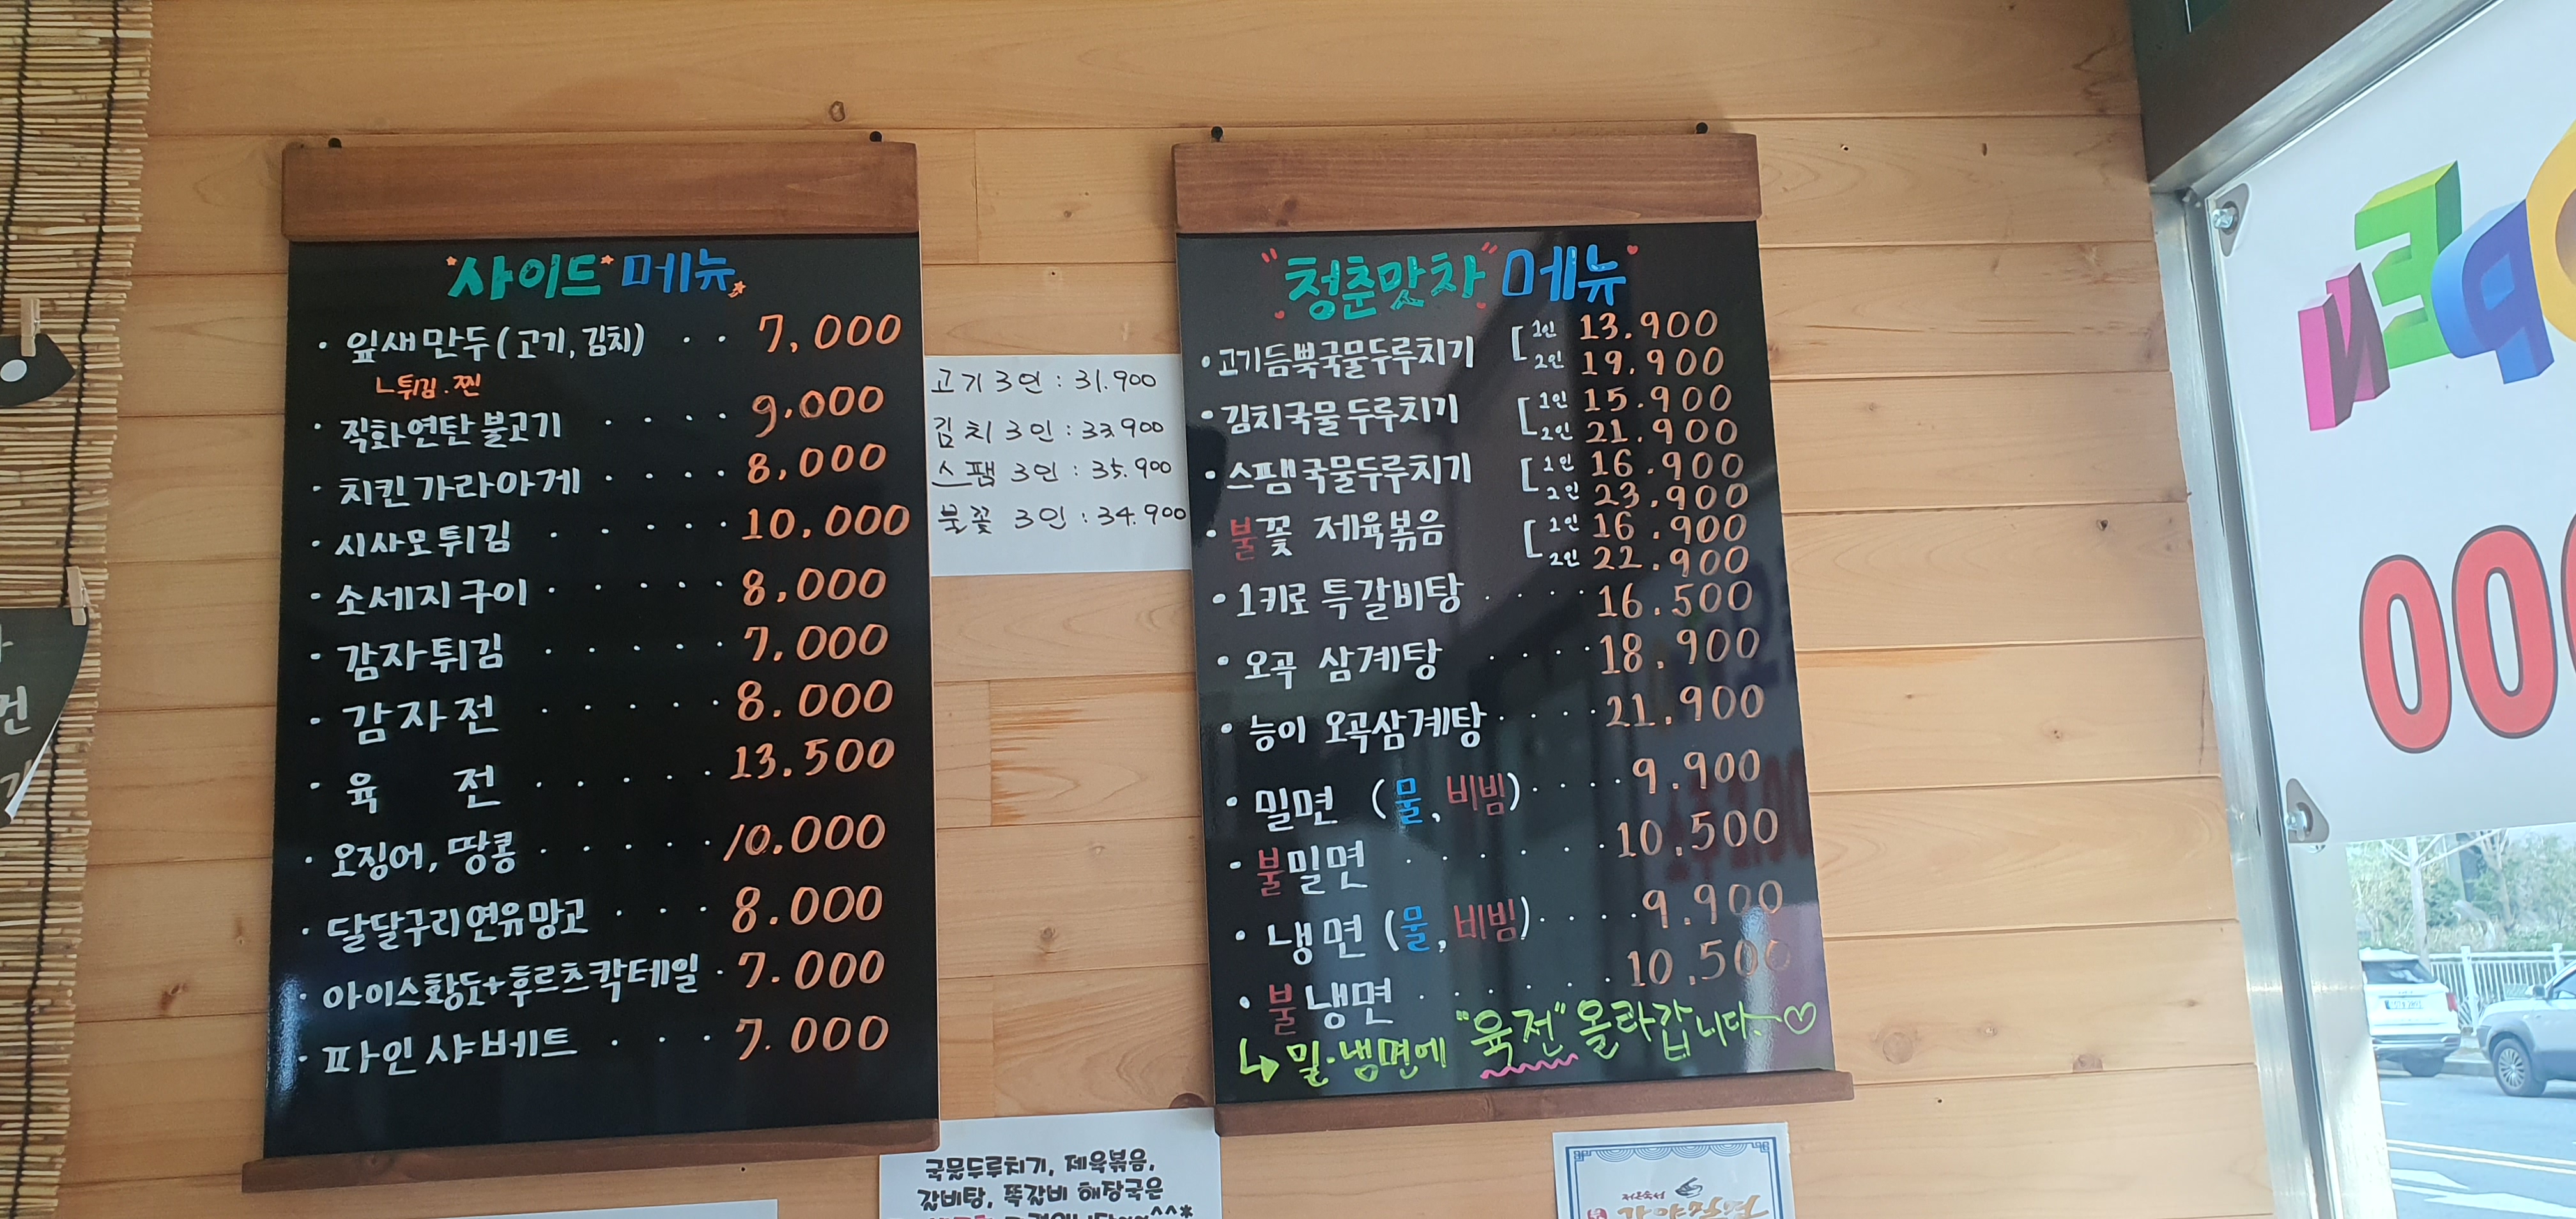 "사이드" 메뉴
· 잎새만두(고기, 김치) · · 7,000
ㄴ튀김.찐
· 직화연탄불고기 · · · · 9.000
· 치킨가라아게 · · · · 8,000
· 시사모튀김 · · · · · 10,000
· 소세지구이 · · · · · 8,000
· 감자튀김 · · · · · 7,000
· 감자전 · · · · · 8.000
· 육 전 · · · · · 13.500
· 오징어, 땅콩 · · · · · 10.000
· 달달구리연유망고 · · · 8.000
· 아이스황도+후르츠칵테일 · 7.000
· 파인샤베트 · · · 7.000
고기 3인 : 31.900
김치 3인 : 33.900
스팸 3인 : 35.900
불꽃 3인 : 34.900
"청춘맛차" 메뉴
· 고기듬뿍국물두루치기 [ 1인 13.900
2인 19.900
· 김치국물두루치기 [ 1인 15.900
2인 21.900
· 스팸국물두루치기 [ 1인 16.900
2인 23.900
· 불꽃 제육볶음 [ 1인 16.900
2인 22.900
· 1키로 특갈비탕 · · · · 16.500
· 오곡 삼계탕 · · · · 18.900
· 능이 오곡삼계탕 · · · · 21.900
· 밀면 (물, 비빔) · · · · 9.900
· 불밀면 · · · · · · 10.500
· 냉면 (물, 비빔) · · · · 9.900
· 불냉면 · · · · · · 10.500
↳ 밀·냉면에 "육전" 올라갑니다~♡
국물두루치기, 제육볶음,
갈비탕, 쪽갈비 해장국은
OPEN
000